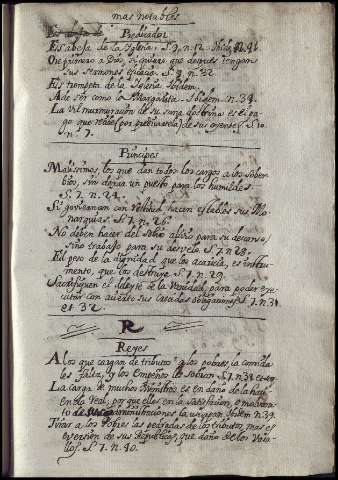 mas notables
Predicador
Es abeja de la Iglesia, S. 9. n. 12.
Ore primero a Dios, si quiere que despues tengan
sus sermones eficacia. S. 9. n. 32
Es trompeta de la Iglesia Ibidem.
A de ser como la Margarita. Ibidem. n. 34.
La vil murmuracion de su sana doctrina es el pa-
go que recibe (por predicarla) de sus oyentes. S. 10.
n. 7.
Principes
Malissimos, los que dan todos los cargos a los sober-
bios, sin dexar un puesto para los humildes.
S. 7. n. 24.
Si goviernan con rectitud hacen estables sus Mo-
narquias. S. 7. n. 26.
No deben hacer del Solio alivio para su descanso,
sino trabajo para su desvelo. S. 7. n. 28.
El peso de la dignidad que los acaricia, es instru-
mento, que los destruye. S. 7. n. 29.
Sacrifiquen el deleyte de la Vanidad, para poder exe-
cutar con acierto sus crecidas obligaciones. S. 7. n. 31
et 32.
R
Reyes
A los que cargan de tributos a los pobres, la comida
les falta, y los empeños les sobran S. 7. n. 38. et 39.
La carga de muchos Ministros es en daño de la hacienda
Real; por que ellos en la satisfacion, o
to de administraciones la usurpan Ibidem n. 39.
Tirar a los Pobres las pedradas de los tributos, mas es
eversion de sus Republicas, que daño de los Vasa-
llos. S. 7. n. 40.